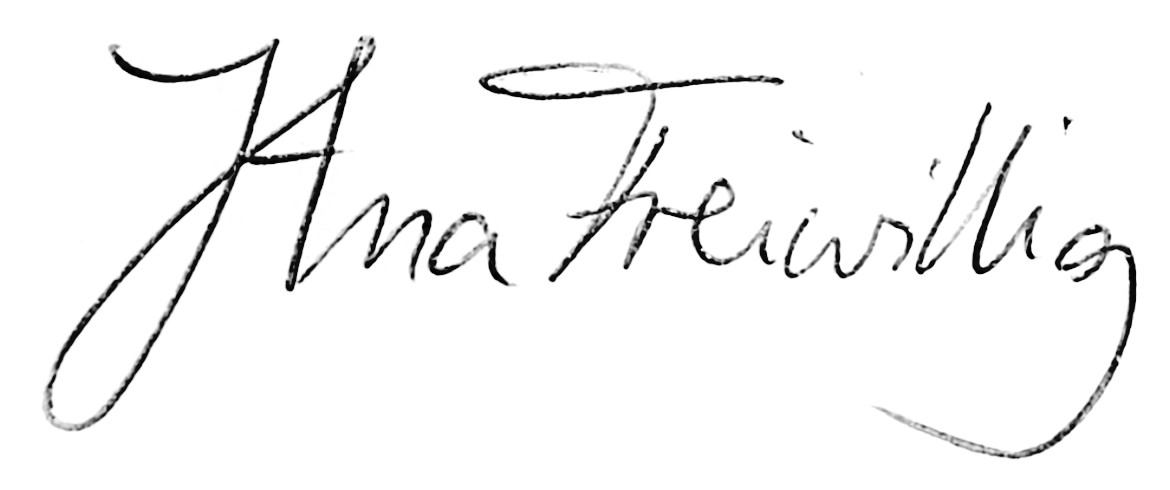 Ana Freiwillig